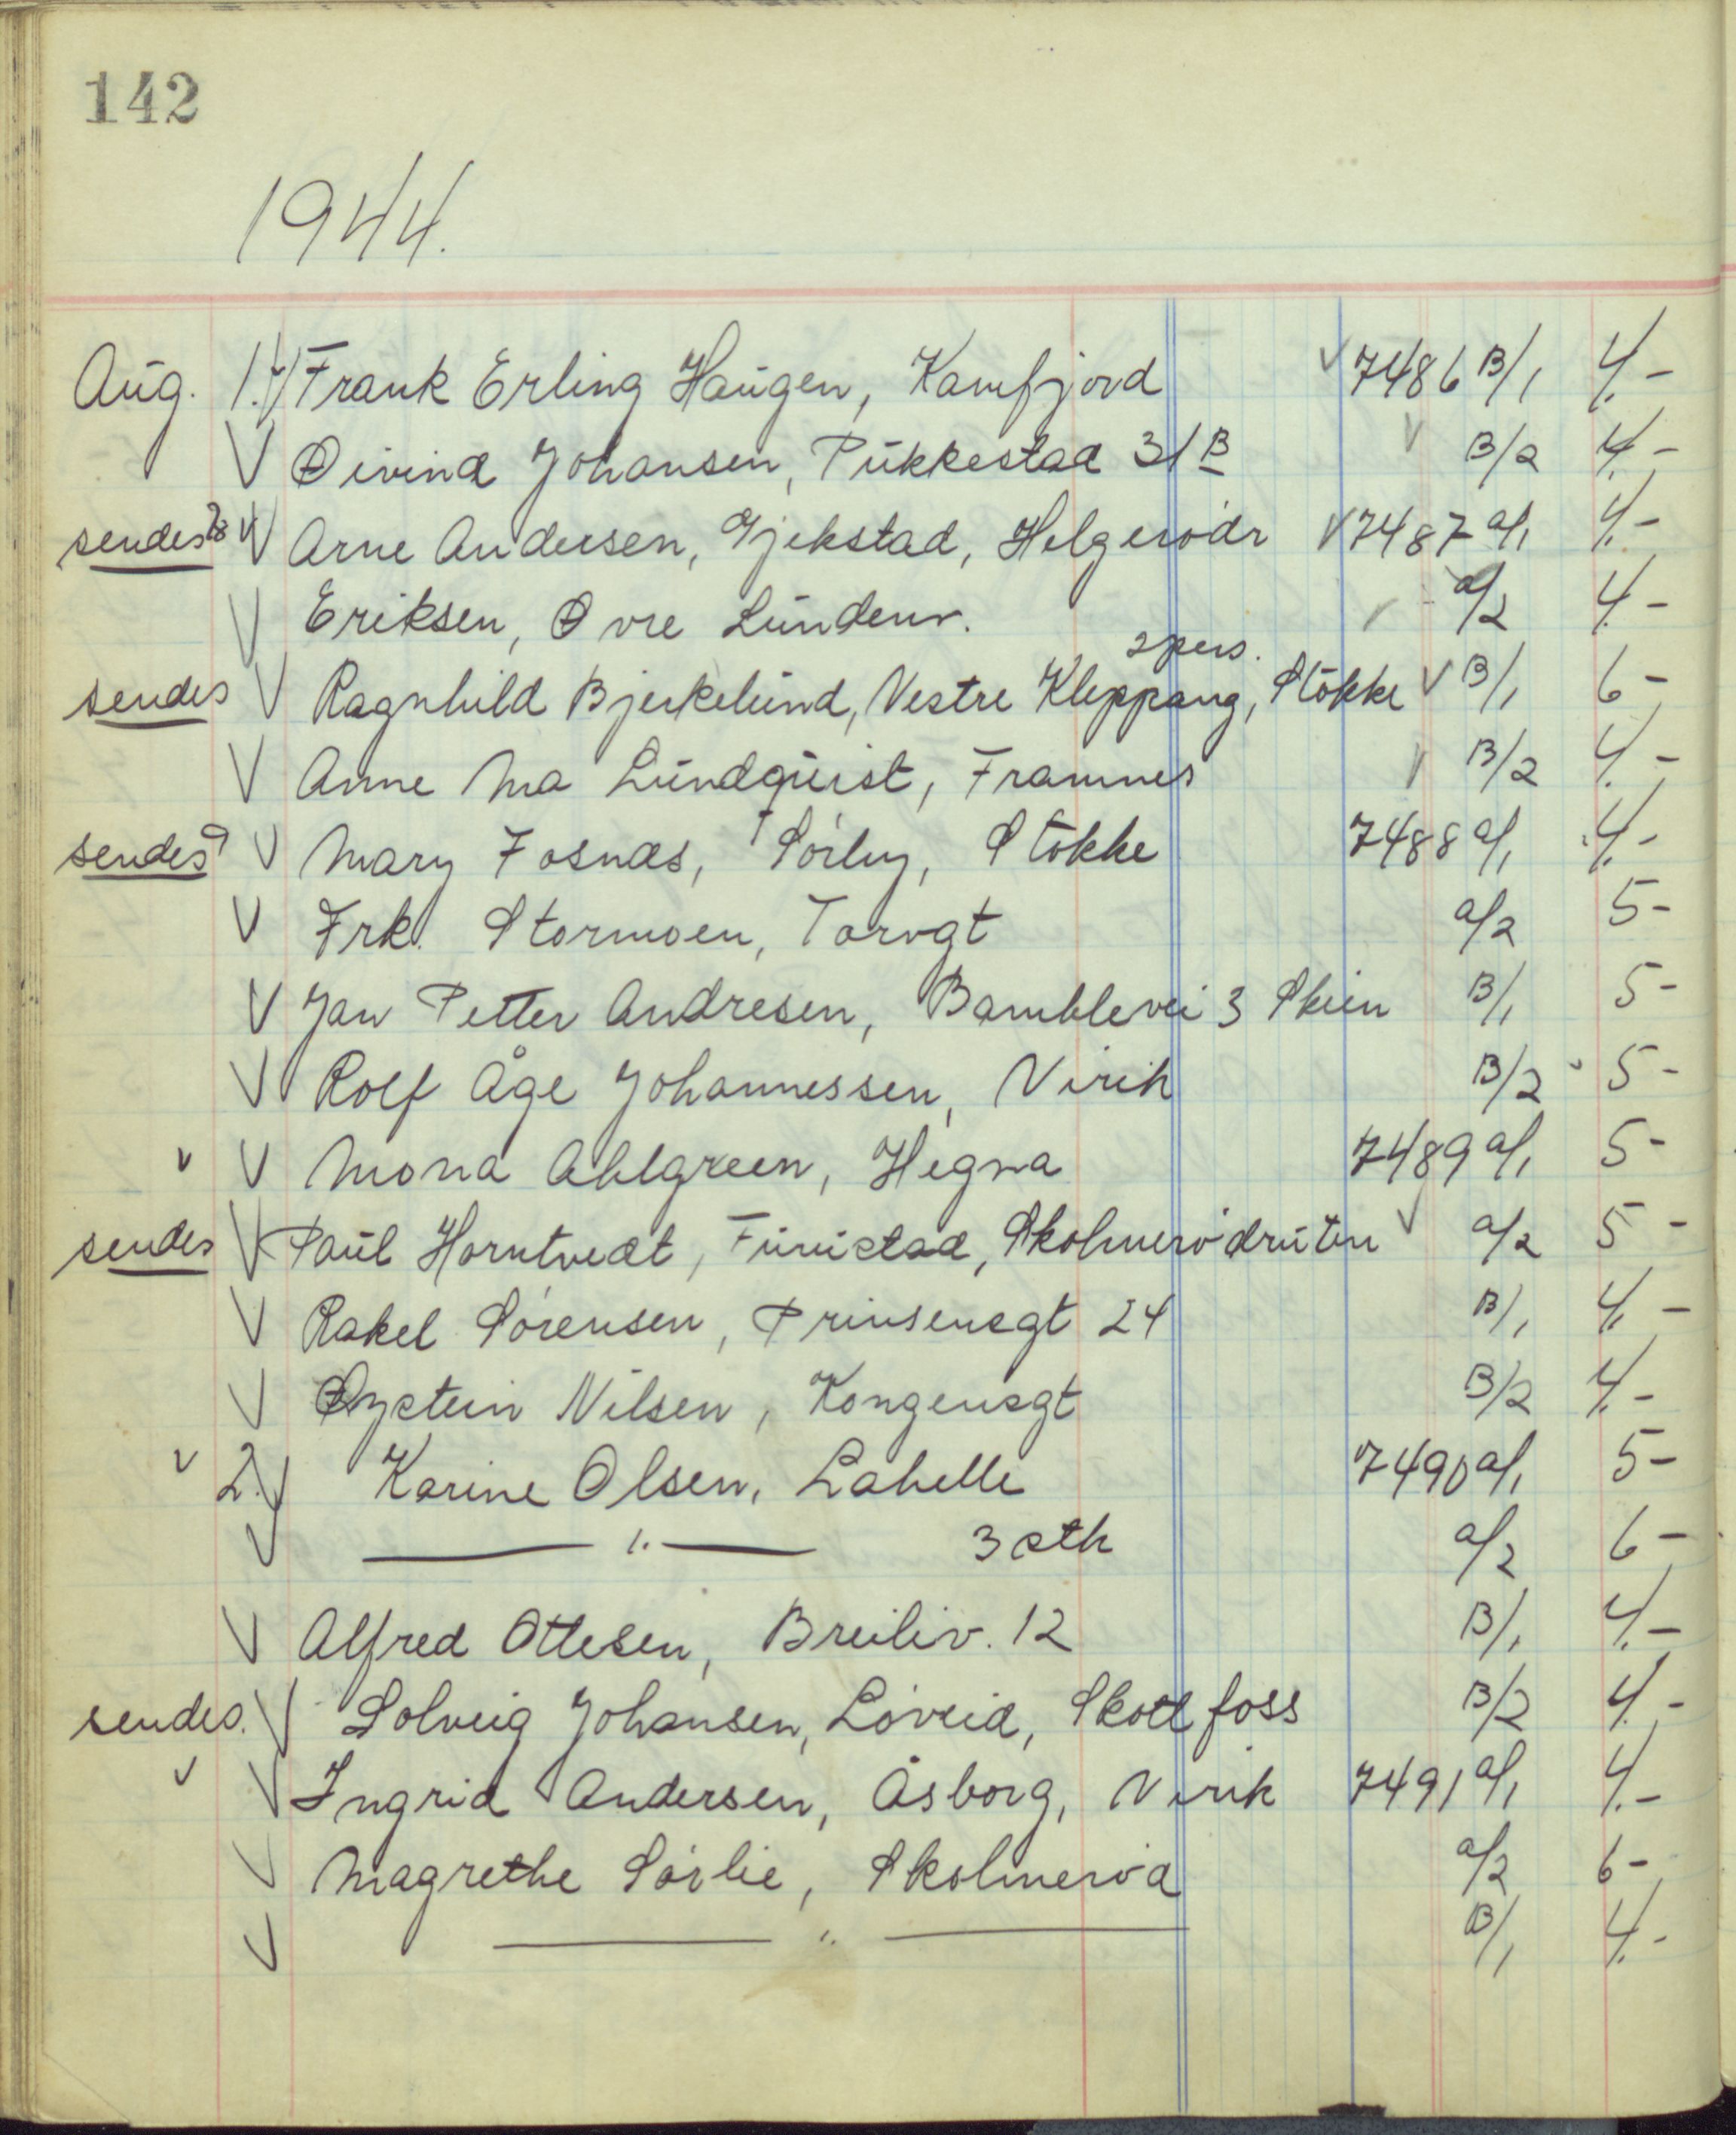 142
1944.
Aug. 1. V Frank Erling Haugen, Kamfjord V 7486 B/1 4.-
V Øivind Johansen, Pukkestad 31 B V B/2 4.-
sendes V Arne Andersen, Gjekstad, Helgerødr V 7487 a/1 4.-
V Eriksen, Øvre Lundenv. V a/2 4.-
2 pers.
sendes V Ragnhild Bjerkelund, Vestre Kleppang, Stokke V B/1 6-
V Anne Ma Lundquist, Framnes V B/2 4.-
sendes V Mary Fosnæs, Sørby, Stokke 7488 a/1 4.-
V Frk. Stormoen, Torvgt a/2 5-
V Jan Petter Andresen, Bamblevei 3 Skien B/1 5-
V Rolf Åge Johannessen, Virik B/2 5-
v V Mona Ahlgreen, Hegna 7489 a/1 5-
sendes V Paul Horntvedt, Furustad, Skolmerødruten V a/2 5-
V Rakel Sørensen, Prinsensgt 24 B/1 4.-
V Øystein Nilsen, Kongensgt B/2 4.-
v 2. V Karine Olsen, Lahelle 7490 a/1 5-
V —— " —— 3 stk a/2 6-
V Alfred Ottesen, Breiliv. 12 B/1 4.-
sendes. V Solveig Johansen, Løveid, Skotfoss B/2 4.-
v V Ingrid Andersen, Åsborg, Virik 7491 a/1 4.-
V Magrethe Sørlie, Skolmerød a/2 6-
V —— " —— B/1 4.-